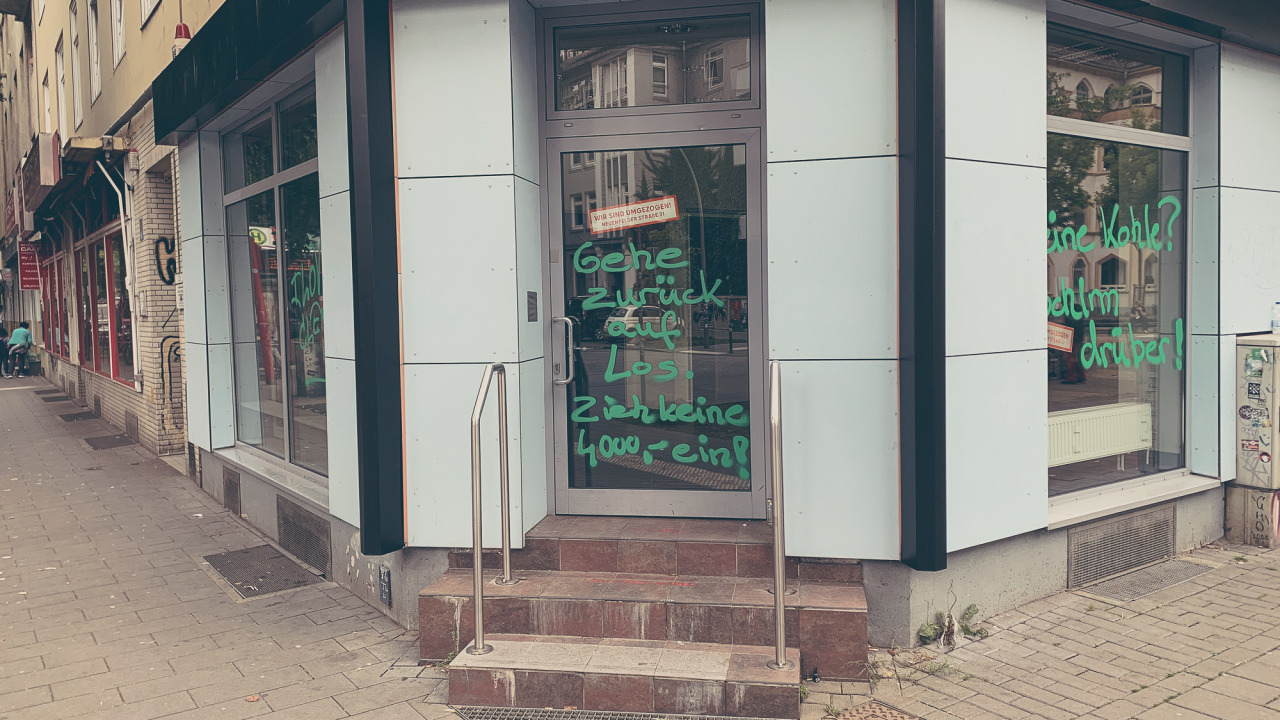 WIR SIND UMGEZOGEN!
NEUENFELDER STRAßE 31
Gehe
zurück
auf
Los.
Zieh keine
4000,- ein!
eine Kohle?
drüber!
CAF